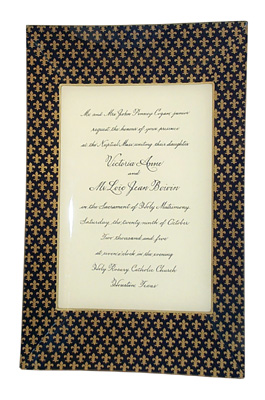 Mr and Mrs John
request the honour of your presence
at the Nuptial Mass uniting their daughter
Victoria Anne
and
Jean
in the Sacrament of Holy Matrimony
Saturday, the twenty-ninth of October
Two thousand and five
at seven o'clock in the evening
Holy Rosary Catholic Church
Texas